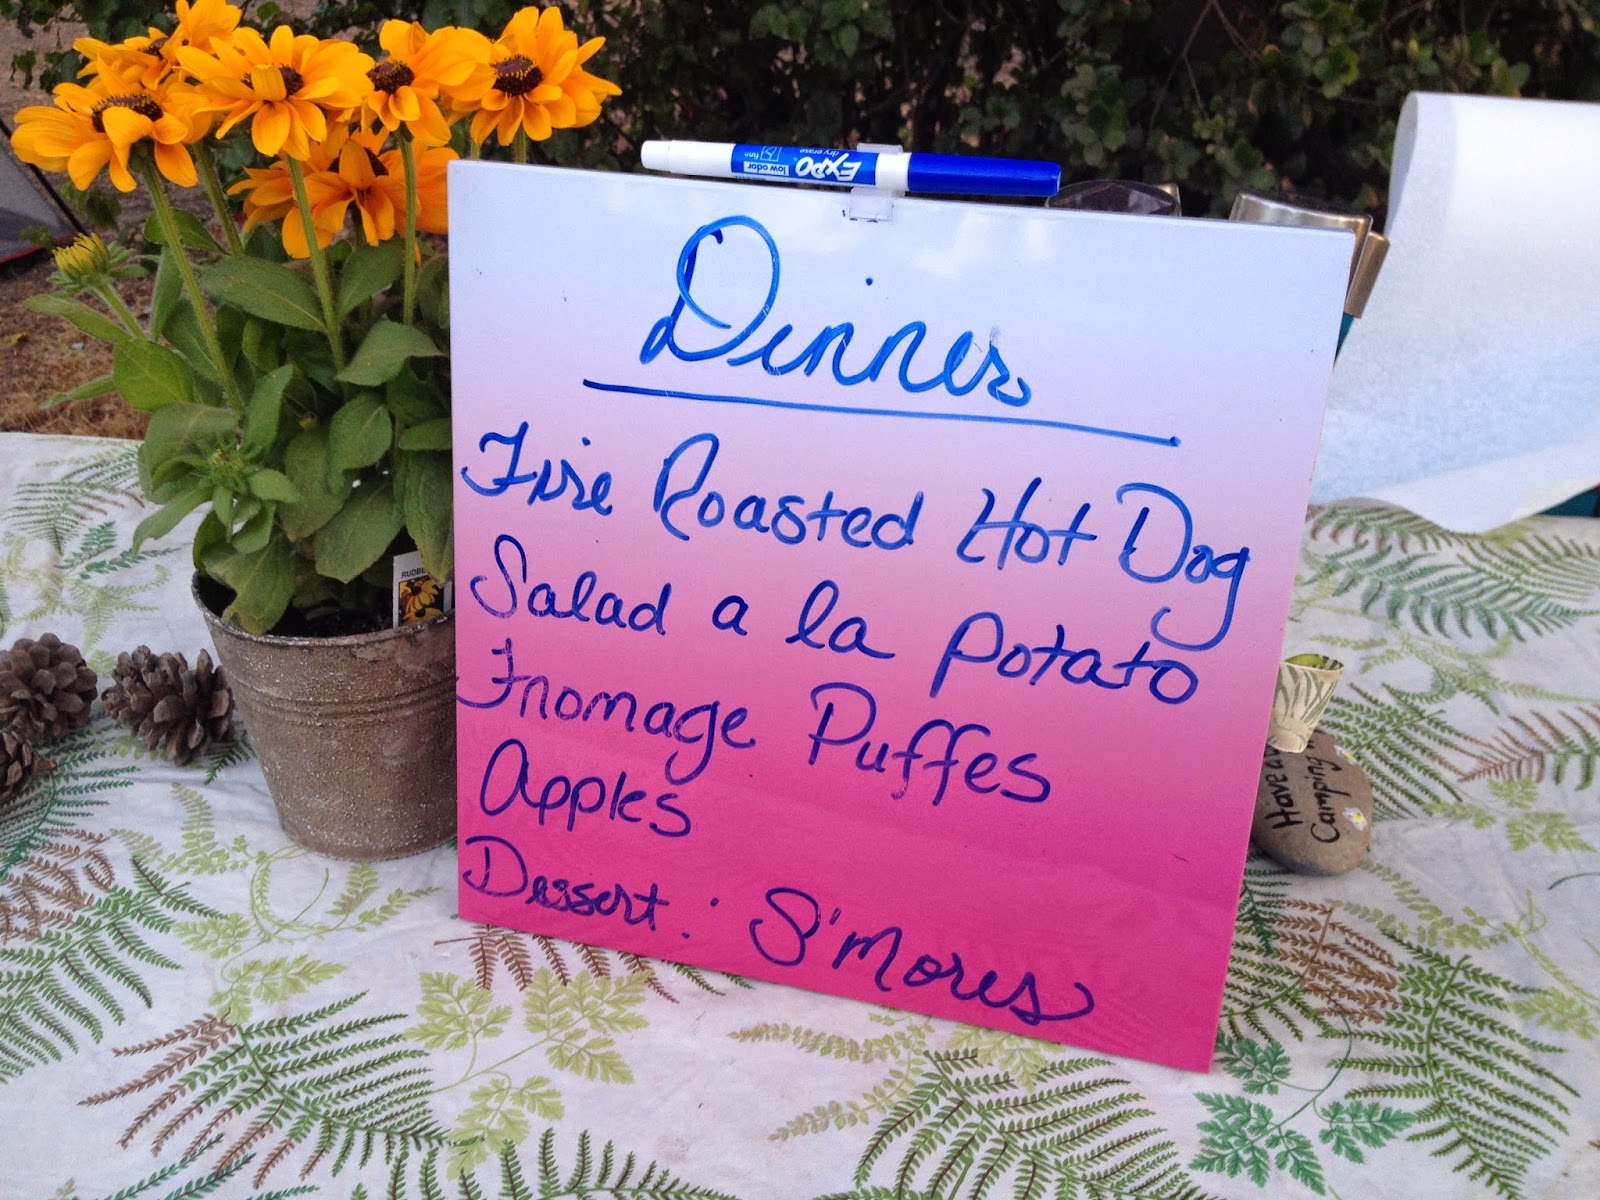 EXPO
low odor
dry erase
fine
Dinner
Fire Roasted Hot Dog
Salad a la potato
Fromage Puffes
Apples
Dessert: S'Mores
RUDBE
Have a
Camping